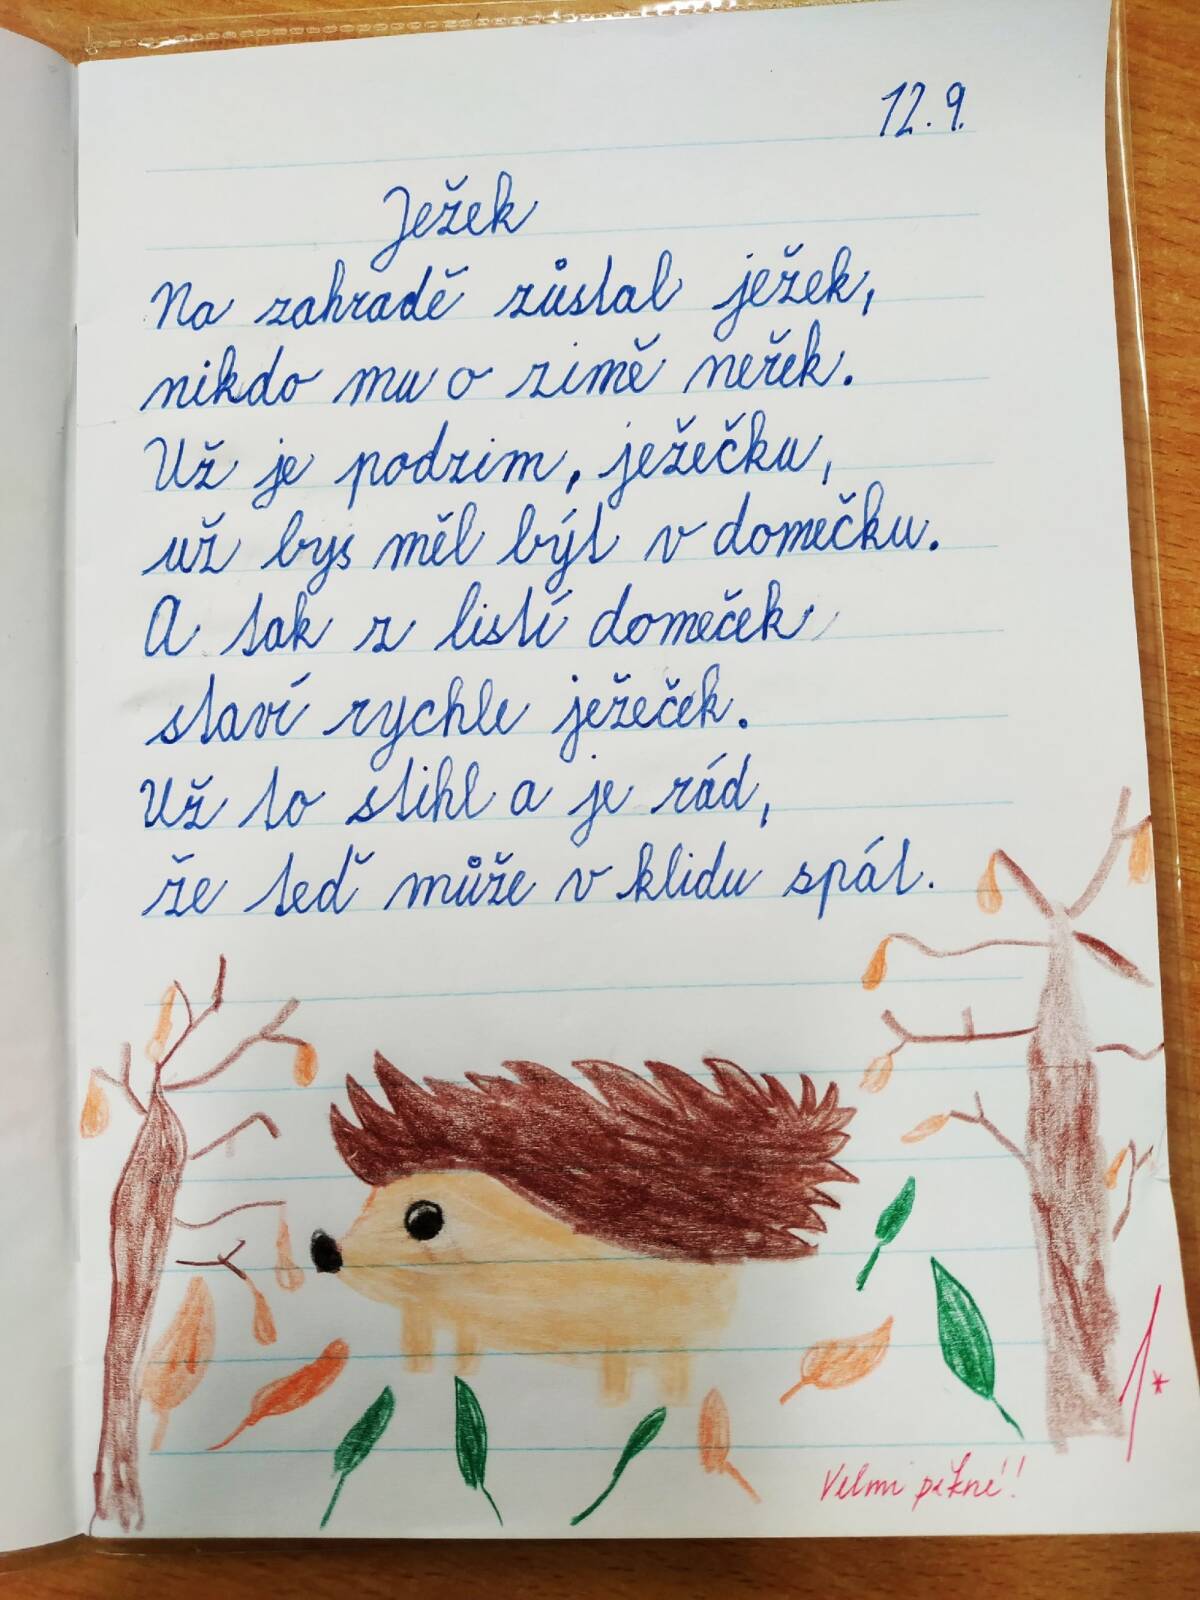 12.9.
Ježek
Na zahradě zůstal ježek,
nikdo mu o zimě neřek.
Už je podzim, ježečku,
už bys měl být v domečku.
A tak z listí domeček
staví rychle ježeček.
Už to stihl a je rád,
že teď může v klidu spát.
1*
Velmi pěkné!!